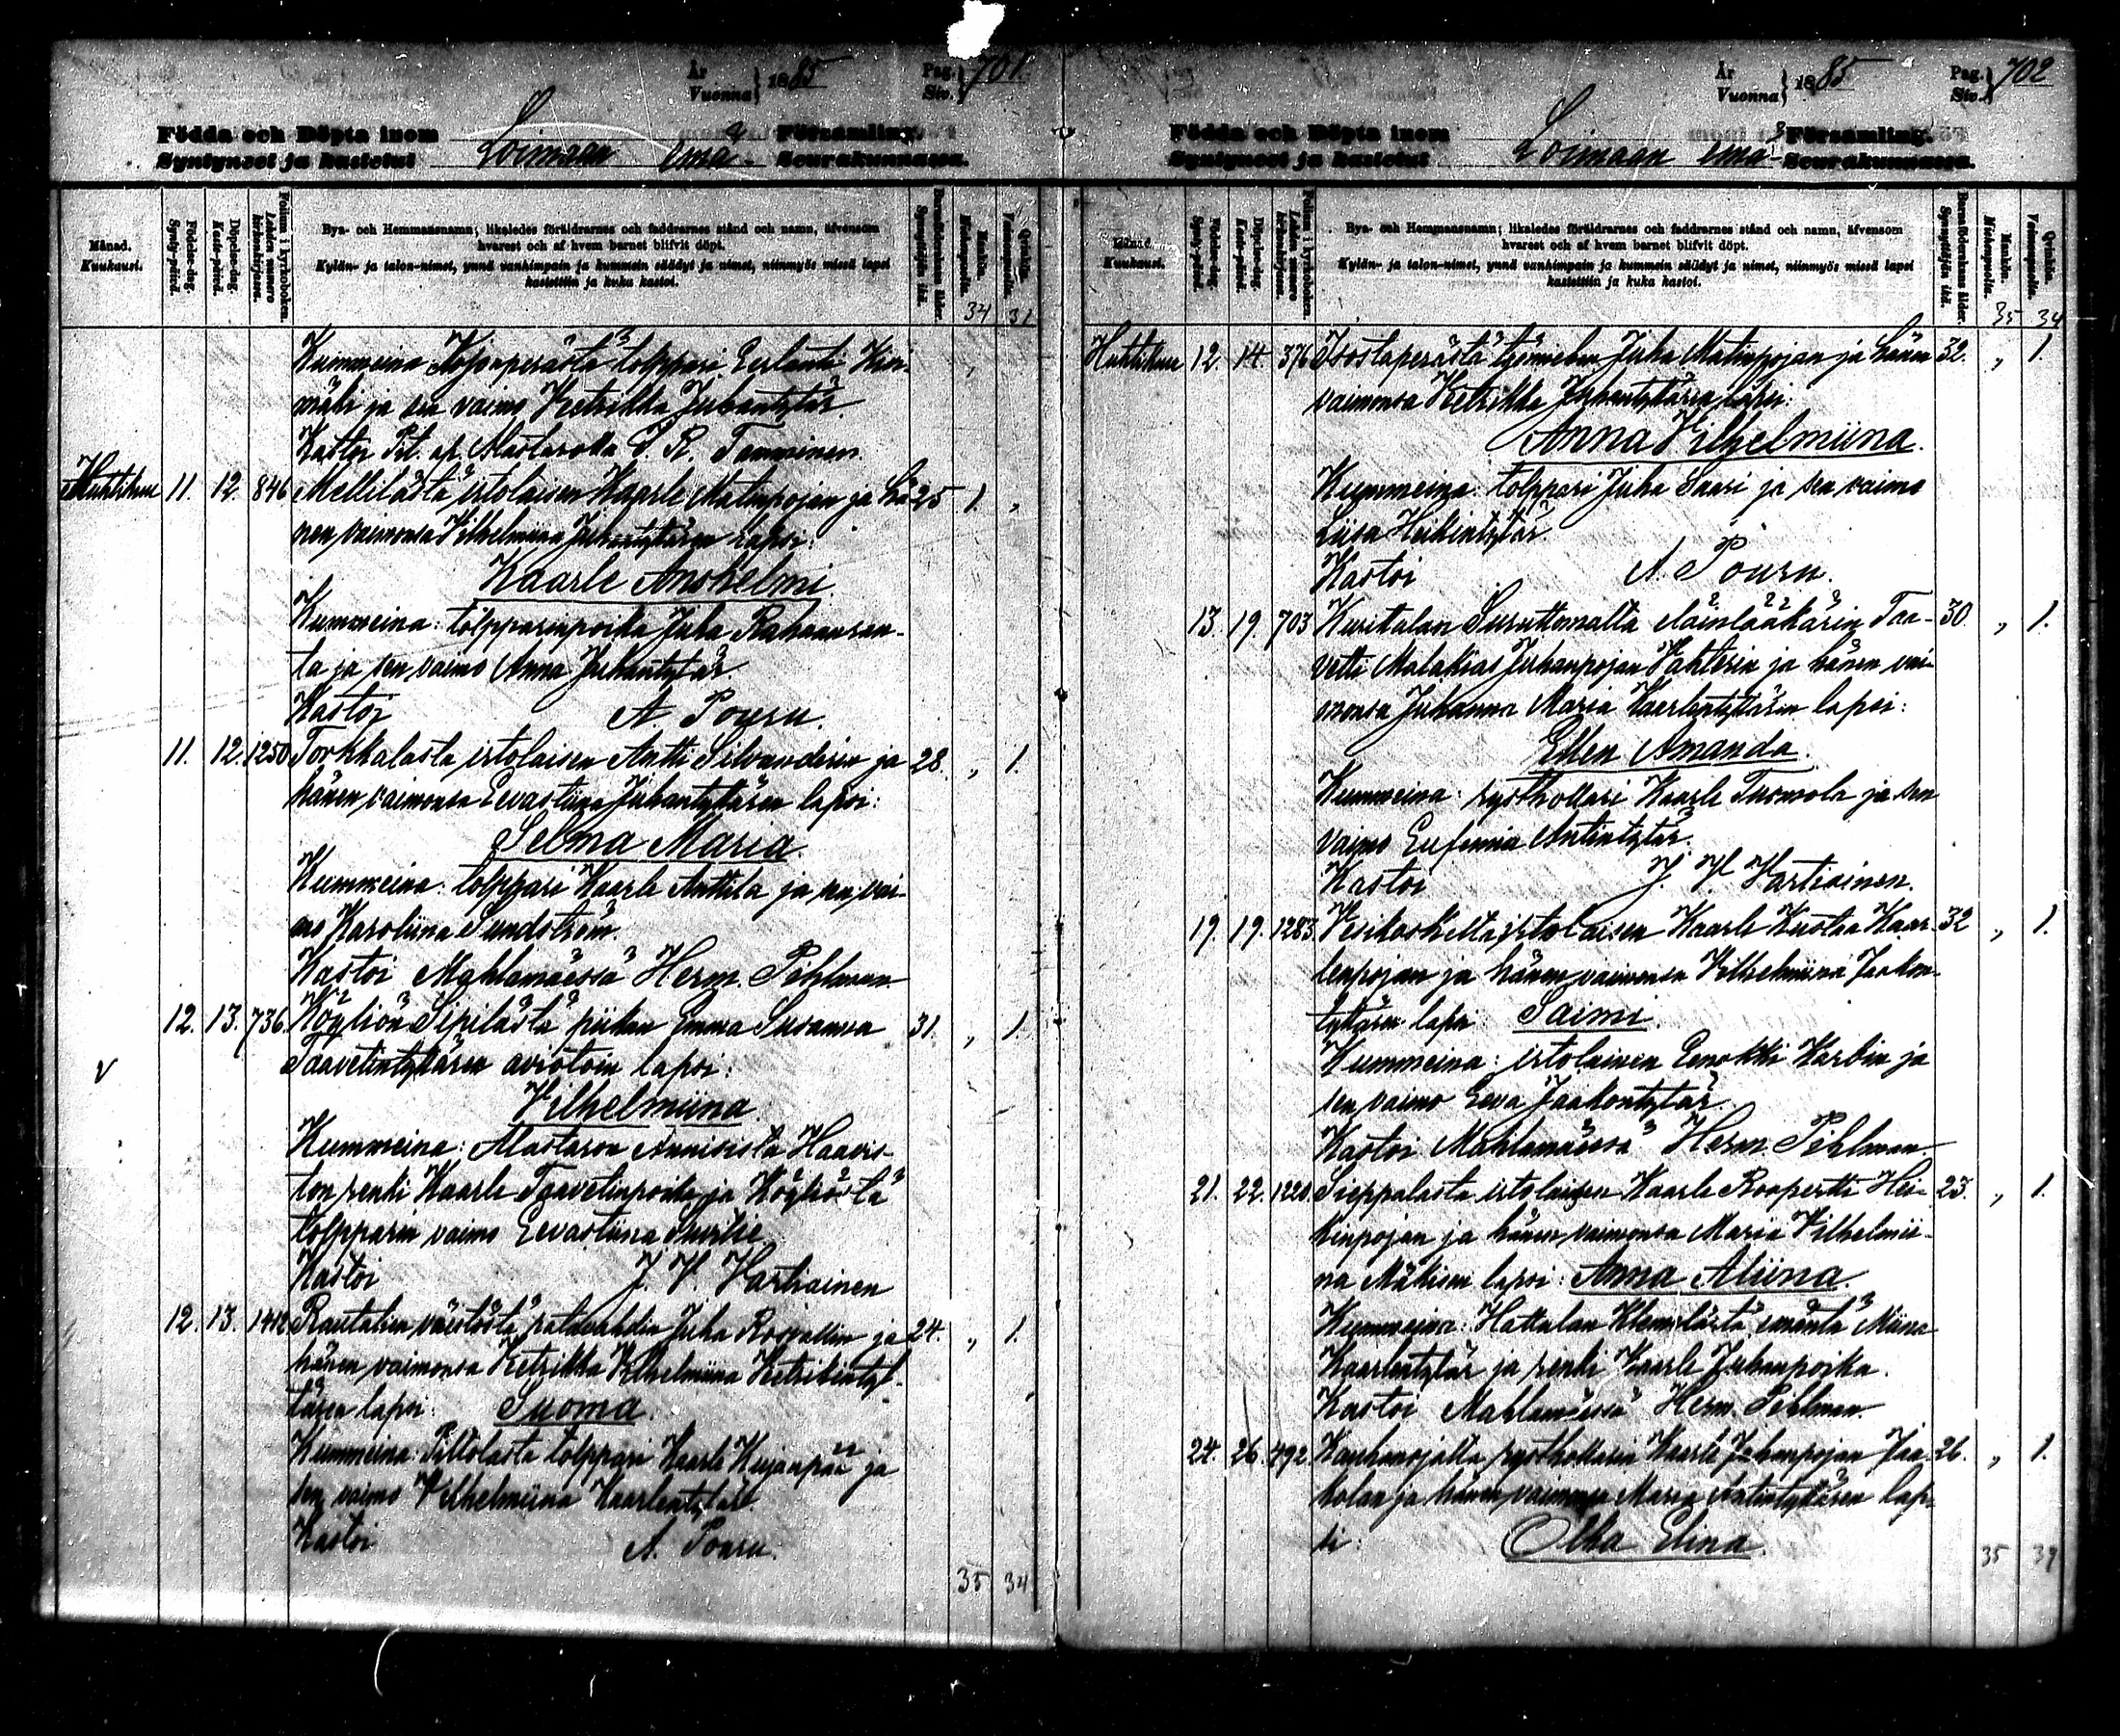 År
Vuonna } 1885
Pag.
Siv. } 701.
Födda och Döpta inom Församling.
Syntyneet ja kastetut Loimaan emä- Seurakunnassa.
Månad.
Kuukausi.
Födelse-dag.
Synty-päivä.
Döpelse-dag.
Kaste-päivä.
Folium i kyrkoboken.
Lehden numero kirkonkirjassa.
Bya- och Hemmansnamn; likaledes föräldrarnes och faddrarnes stånd och namn, äfvensom
hvarest och af hvem barnet blifvit döpt.
Kylän- ja talon-nimet, ynnä vanhimpain ja kummein säädyt ja nimet, niinmyös missä lapsi
kastettiin ja kuka kastoi.
Barnaföderskans ålder.
Synnyttäjän ikä.
Mankön.
Miehenpuolia.
Qvinkön.
Vaimonpuolia.
34 31
Kummeina: Kojonperästä tolppari Eerlanti
mäki ja sen vaimo Ketrikka Juhantytär.
Kastoi Pit. ap. Alastarolla T. R. Tamminen
Huhtikuu 11. 12. 846 Mellilästä irtolaisen Kaarle Matinpojan ja hä- 25 1. „
nen vaimonsa Vilhelmiina Juhontyttären lapsi:
Kaarle Anshelmi.
Kummeina: tolpparinpoika Juha Rahaanran-
ta ja sen vaimo Anna Juhantytär.
Kastoi A Pouru.
11. 12. 1250 Torkkalasta irtolaisen Antti Silvanderin ja 28. „ 1.
hänen vaimonsa Eevastiina Juhantyttären lapsi:
Selma Maria.
Kummeina: tolppari Kaarle Anttila ja sen vai-
mo Karoliina Sundström.
Kastoi Mahlamäessä Herm. Pihlman
12. 13. 736. Köyliön Sipilästä piikan Emma Susanna 31. „ 1.
Taavetintyttären aviotoin lapsi:
Vilhelmiina
Kummeina: Alastaron Annisista Haavis-
ton renki Kaarle Taavetinpoika ja Köyliöstä
tolpparin vaimo Eevastiina
Kastoi J. V. Hartiainen
12. 13. 1412 väestöstä ratavahdin Juha ja 24. „ 1.
hänen vaimonsa Ketrikka Vilhelmiina Ketrikintyt-
tären lapsi: Suoma.
Kummeina: Piltolasta tolppari Kaarle Kujanpää ja
sen vaimo Vilhelmiina Kaarlentytär
Kastoi A. Pouru.
35 34
År
Vuonna } 1885
Pag.
Siv. } 702
Födda och Döpta inom Församling.
Syntyneet ja kastetut Loimaan emä- Seurakunnassa.
Månad.
Kuukausi.
Födelse-dag.
Synty-päivä.
Döpelse-dag.
Kaste-päivä.
Folium i kyrkoboken.
Lehden numero kirkonkirjassa.
Bya- och Hemmansnamn; likaledes föräldrarnes och faddrarnes stånd och namn, äfvensom
hvarest och af hvem barnet blifvit döpt.
Kylän- ja talon-nimet, ynnä vanhimpain ja kummein säädyt ja nimet, niinmyös missä lapsi
kastettiin ja kuka kastoi.
Barnaföderskans ålder.
Synnyttäjän ikä.
Mankön.
Miehenpuolia.
Qvinkön.
Vaimonpuolia.
35 34
Huhtikuu 12. 14. 376 työmiehen Juha Matinpojan ja hänen 32. „ 1.
vaimonsa Ketrikka Juhantyttären lapsi:
Anna Vilhelmiina.
Kummeina: tolppari Juha Saari ja sen vaimo
Liisa Heikintytär.
Kastoi A. Pouru.
13. 19. 703 Kurikalan Suruttomalta eläinlääkärin Taa- 30. „ 1.
vetti Malakias Juhanpojan Vahterin ja hänen vai-
monsa Juhanna Maria Kaarlentyttären lapsi:
Ellen Amanda.
Kummeina: rusthollari Kaarle Tuomola ja sen
vaimo Eufemia Antintytär.
Kastoi J. V. Hartiainen.
19. 19. 1283. Vesikoskelta irtolaisen Kaarle Kustaa Kaar- 32 „ 1.
lenpojan ja hänen vaimonsa Vilhelmiina Jaakon-
tyttären lapsi Saimi.
Kummeina: irtolainen Eenokki Karlin ja
sen vaimo Eeva Jaakontytär.
Kastoi Mahlamäessä Herm. Pihlman
21. 22. 1220. Sieppalasta irtolaisen Kaarle Roopertti Hei- 23. „ 1.
kinpojan ja hänen vaimonsa Maria Vilhelmii-
na Mäkisen lapsi: Anna Aliina.
Kummeina: Hattalan Klemolasta emäntä Miina
Kaarlentytär ja renki Kaarle Juhanpoika.
Kastoi Mahlamäessä Herm. Pihlman.
24. 26. 492 Kauhanojalta rusthollarin Kaarle Juhanpojan Jaa- 26. „ 1.
kolan ja hänen vaimonsa Maria Antintyttären lap-
si: Olka Elina.
35 39